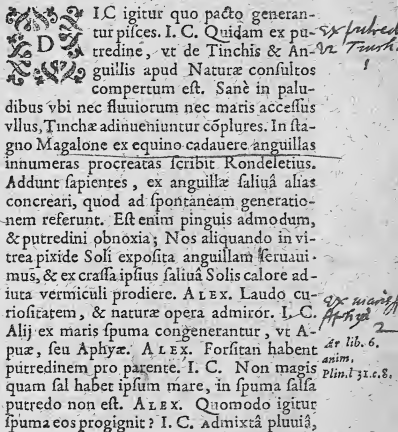 DIC igitur quo pacto generan-
tur pisces. I. C. Quidam ex pu-
tredine, vt de Tinchis & An-
guillis apud Naturæ consultos
compertum est. Sanè in palu-
dibus vbi nec fluuiorum nec maris accessus
vllus, Tinchæ adinueniuntur cõplures. In sta-
gno Magalone ex equino cadauere anguillas
innumeras procreatas scribit Rondeletius.
Addunt sapientes, ex anguillæ saliuâ alias
concreari, quod ad spontaneam generatio-
nem referunt. Est enim pinguis admodum,
& putredini obnoxia; Nos aliquando in vi-
trea pixide Soli exposita anguillam seruaui-
mus, & ex crassa ipsius saliuâ Solis calore ad-
iuta vermiculi prodiere. ALEX. Laudo cu-
riositatem, & naturæ opera admiror. I. C.
Alij ex maris spuma congenerantur, vt A-
puæ, seu Aphyæ. ALEX. Forsitan habent
putredinem pro parente. I. C. Non magis
quam sal habet ipsum mare, in spuma salsa
putredo non est. ALEX. Quomodo igitur
spuma eos progignit? I. C. Admixtâ pluuiâ,
ex putred
vt Tinch
1
ex maris
Aphyæ
2
Ar lib. 6.
anim.
Plin. l 31. c. 8.